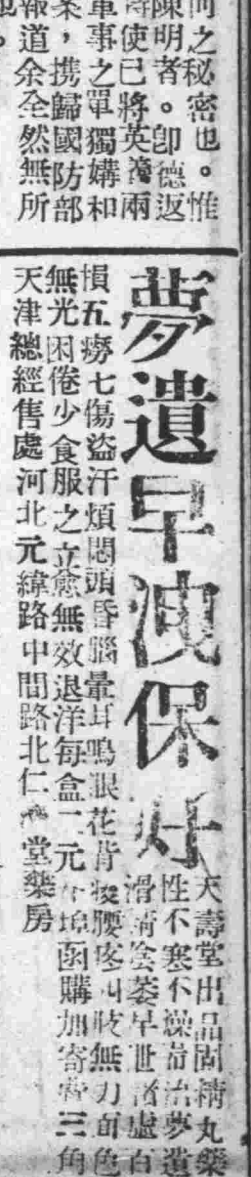 之秘密也。惟
陳明者。卽德返
使已將英義兩
軍事之單獨媾和
案，携歸國防部
報道余全然無所
夢遺早洩保好
天壽堂出品固精丸藥
性不寒不燥耑治夢遺
滑精陰萎早世諸虛百
損五癆七傷盜汗煩悶頭昏腦暈耳鳴眼花背痠腰疼四肢無力面色
無光困倦少食服之立愈無效退洋每盒二元外埠函購加寄費三角
天津總經售處河北元緯路中間路北仁堂藥房